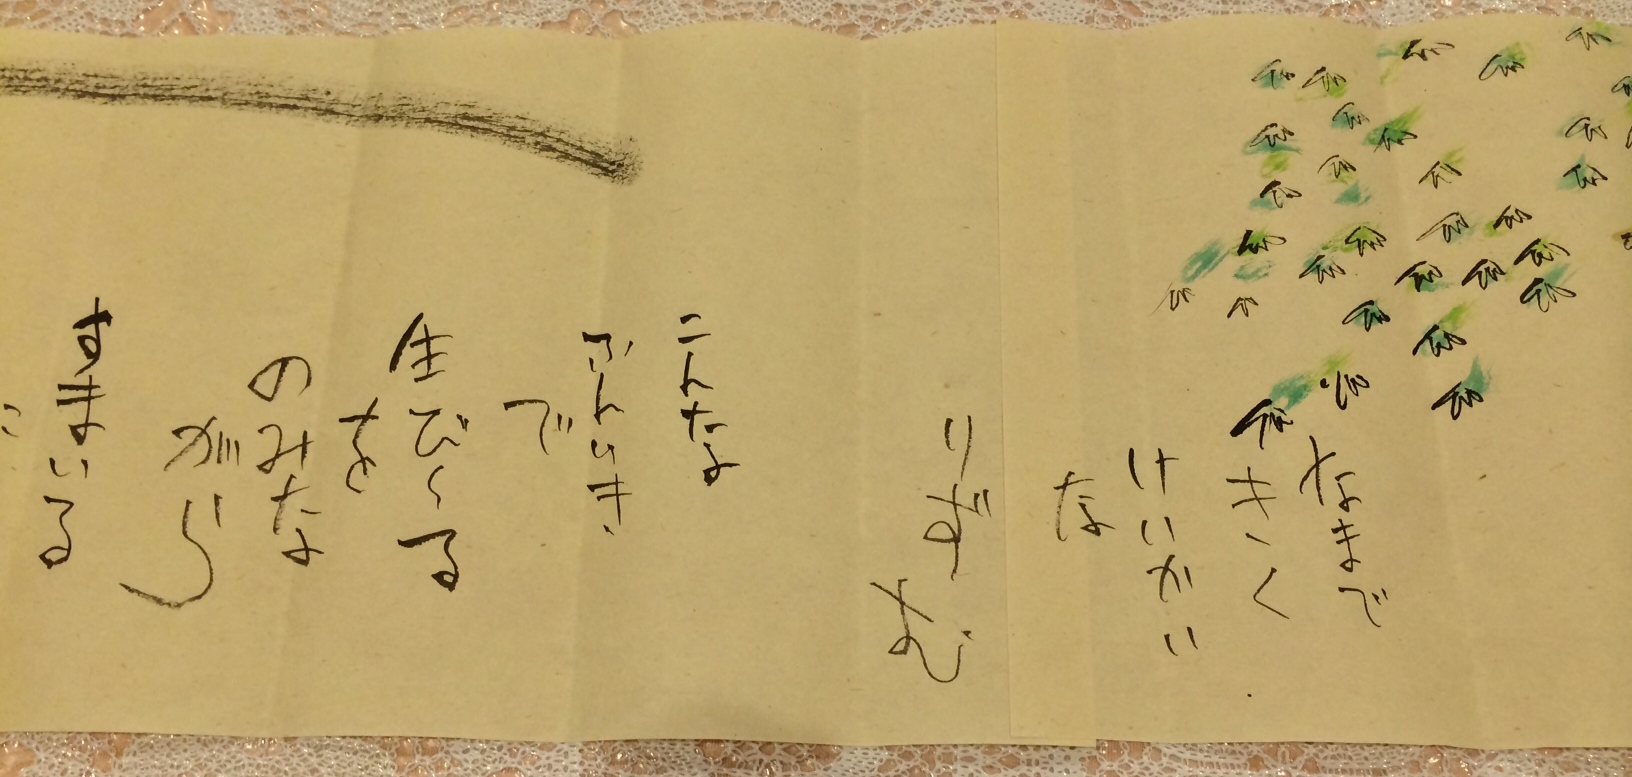 なまで
きく
けいかい
な
りずむ
こんな
ふんいき
で
生びーる
を
のみな
がら
すまいる